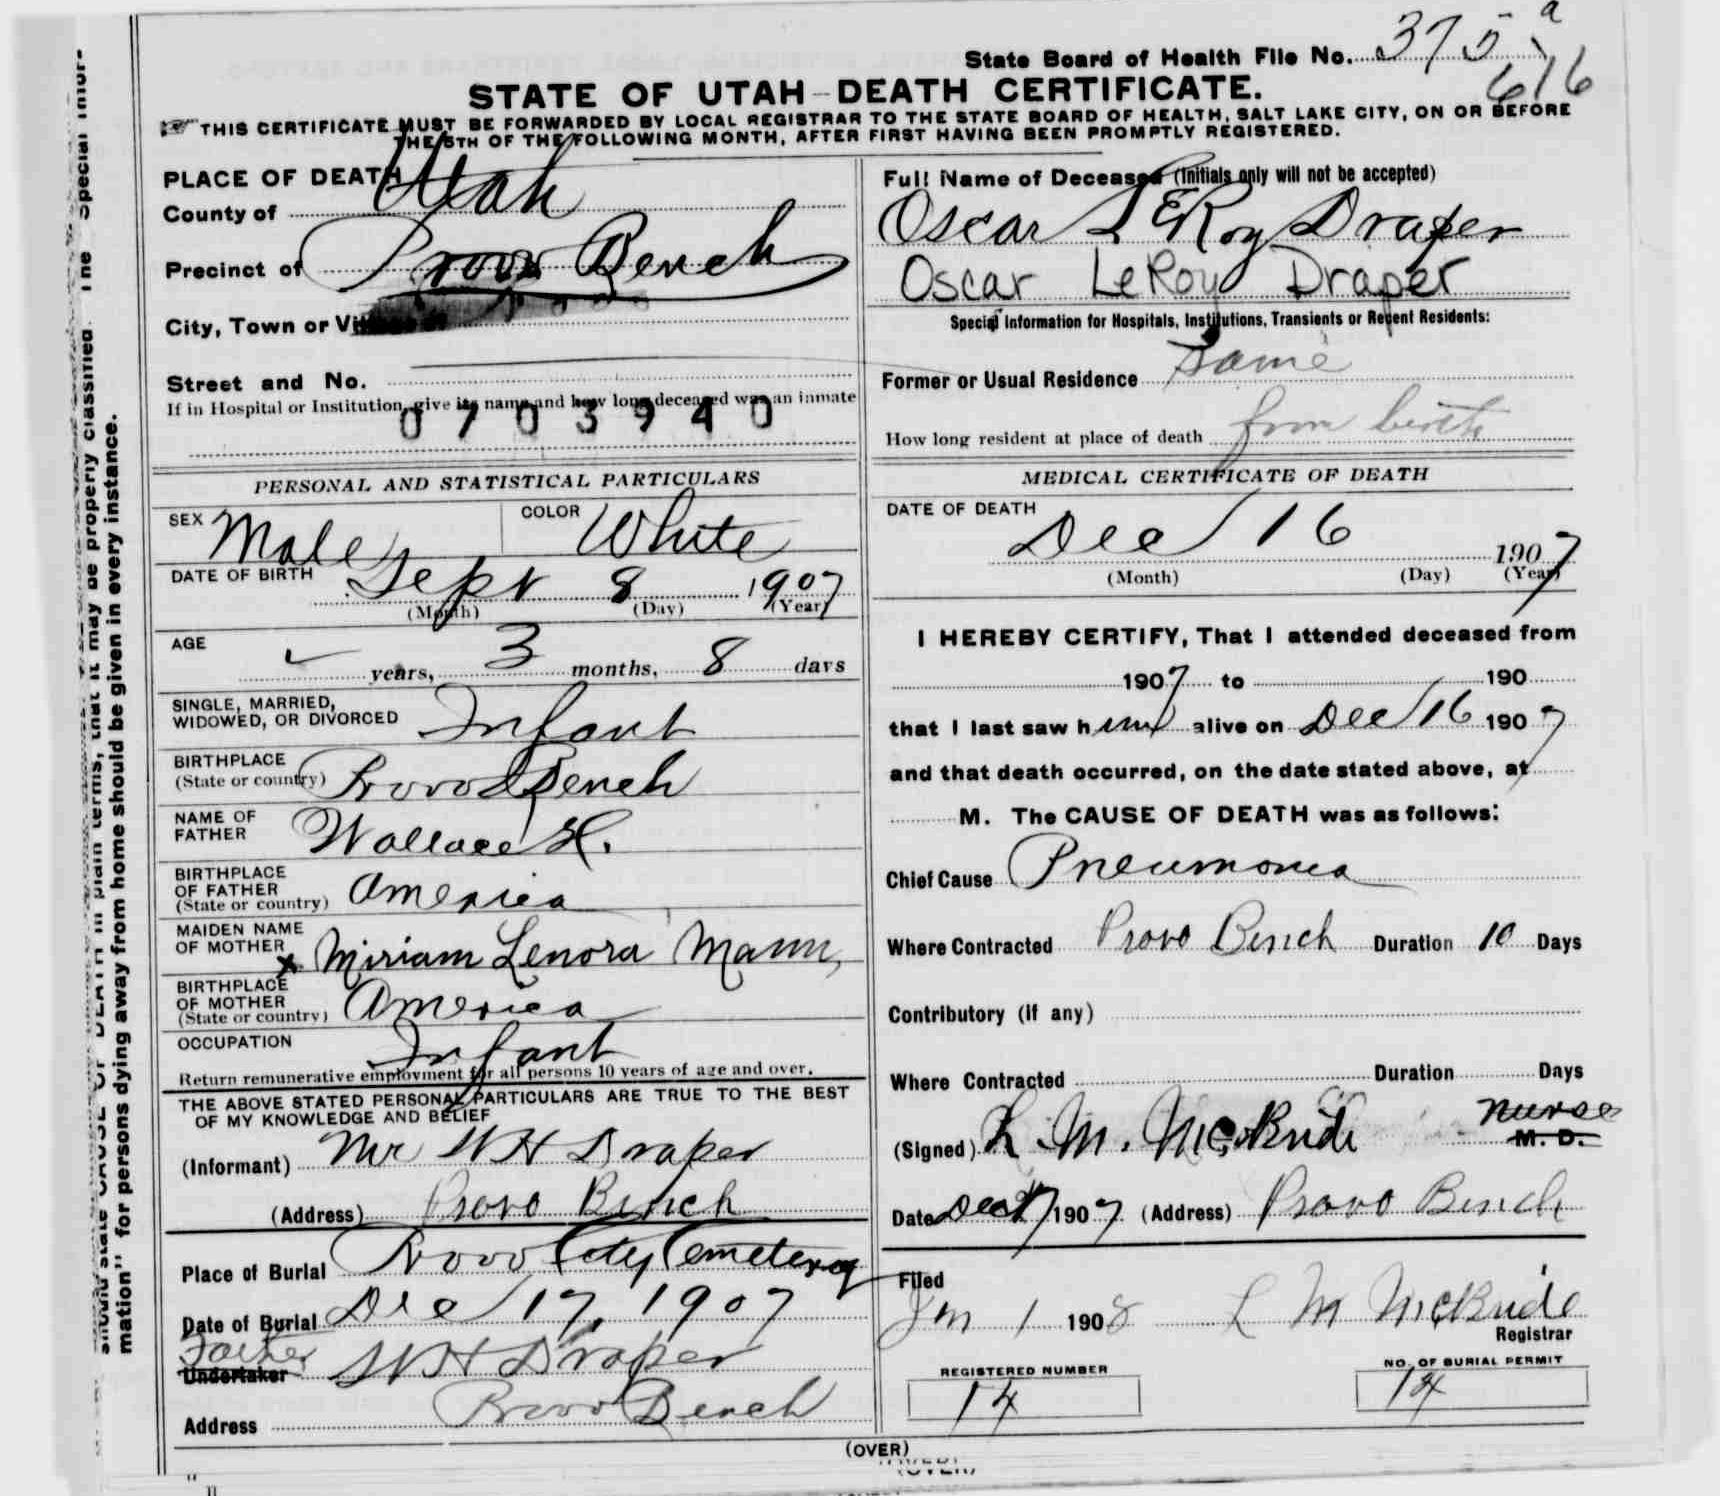 State Board of Health File No. 375 a
616
STATE OF UTAH—DEATH CERTIFICATE.
THIS CERTIFICATE MUST BE FORWARDED BY LOCAL REGISTRAR TO THE STATE BOARD OF HEALTH, SALT LAKE CITY, ON OR BEFORE
THE 5TH OF THE FOLLOWING MONTH, AFTER FIRST HAVING BEEN PROMPTLY REGISTERED.
PLACE OF DEATH
County of Utah
Precinct of Provo Bench
City, Town or Village of
Street and No.
If in Hospital or Institution, give its name and how long deceased was an inmate
0703940
PERSONAL AND STATISTICAL PARTICULARS
SEX Male COLOR White
DATE OF BIRTH Sept 8 1907
(Month) (Day) (Year)
AGE years, 3 months, 8 days
SINGLE, MARRIED,
WIDOWED, OR DIVORCED Infant
BIRTHPLACE
(State or country) Provo Bench
NAME OF
FATHER Wallace H.
BIRTHPLACE
OF FATHER
(State or country) America
MAIDEN NAME
OF MOTHER x Miriam Lenora Mann,
BIRTHPLACE
OF MOTHER
(State or country) America
OCCUPATION Infant
Return remunerative employment for all persons 10 years of age and over.
THE ABOVE STATED PERSONAL PARTICULARS ARE TRUE TO THE BEST
OF MY KNOWLEDGE AND BELIEF
(Informant) Mr W H Draper
(Address) Provo Bench
Place of Burial Provo City Cemetery
Date of Burial Dec 17, 1907
Father
Undertaker W H Draper
Address Provo Bench
Full Name of Deceased (Initials only will not be accepted)
Oscar LERoy Draper
Oscar LeRoy Draper
Special Information for Hospitals, Institutions, Transients or Recent Residents:
Former or Usual Residence Same
How long resident at place of death from birth
MEDICAL CERTIFICATE OF DEATH
DATE OF DEATH
Dec 16 1907
(Month) (Day) (Year)
I HEREBY CERTIFY, That I attended deceased from
1907 to 190
that I last saw him alive on Dec 16 1907
and that death occurred, on the date stated above, at
M. The CAUSE OF DEATH was as follows:
Chief Cause Pneumonia
Where Contracted Provo Bench Duration 10 Days
Contributory (if any)
Where Contracted Duration Days
nurse
(Signed) L. M. McBride M. D.
Date Dec 17 1907 (Address) Provo Bench
Filed
Jan 1 1908 L M McBride
Registrar
REGISTERED NUMBER
14
NO. OF BURIAL PERMIT
14
(OVER)
(OVER)
should state CAUSE OF DEATH in plain terms, that it may be properly classified. The "Special Infor-
mation" for persons dying away from home should be given in every instance.